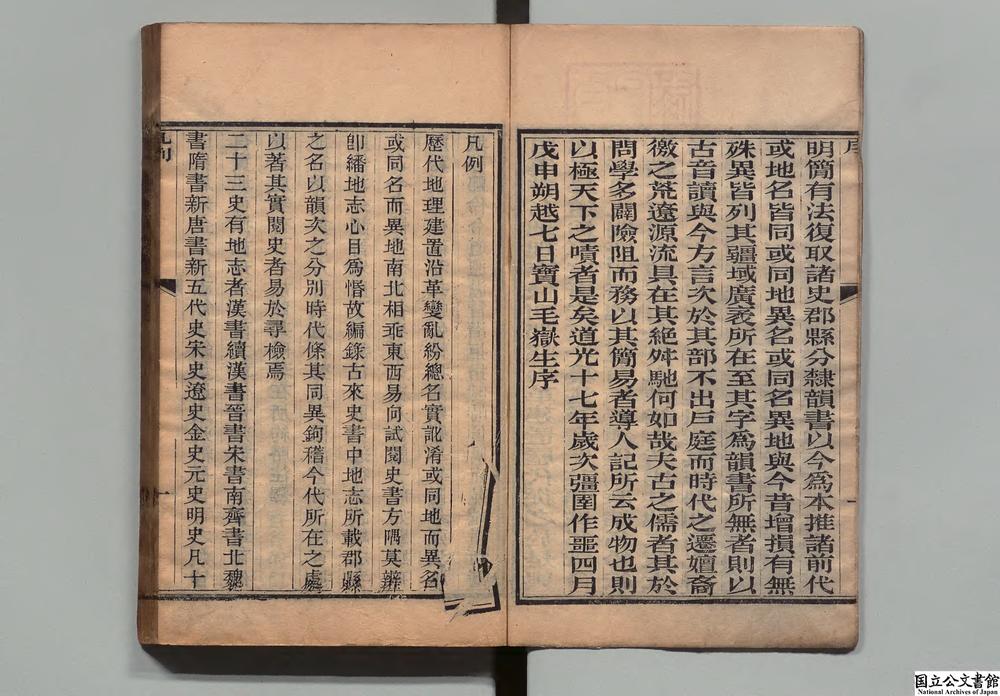 序
明簡有法復取諸史郡縣分隸韻書以今為本推諸前代
或地名皆同或同地異名或同名異地與今昔增損有無
殊異皆列其疆域廣袤所在至其字為韻書所無者則以
古音讀與今方言次於其部不出戶庭而時代之遷嬗裔
徼之荒遼源流具在其絕舛馳何如哉夫古之儒者其於
問學多闢險阻而務以其簡易者導人記所云成物也則
以極天下之嘖者是矣道光十七年歲次彊圉作噩四月
戊申朔越七日寶山毛嶽生序
凡例
歷代地理建置沿革變亂紛總名實訛淆或同地而異名
或同名而異地南北相乖東西易向試閱史書方隅莫辨
卽繙地志心目為惛故編錄古來史書中地志所載郡縣
之名以韻次之分別時代條其同異鉤稽今代所在之處
以著其實閱史者易於尋檢焉
二十三史有地志者漢書續漢書晉書宋書南齊書北魏
書隋書新唐書新五代史宋史遼史金史元史明史凡十
凡例
一
国立公文書館
National Archives of Japan